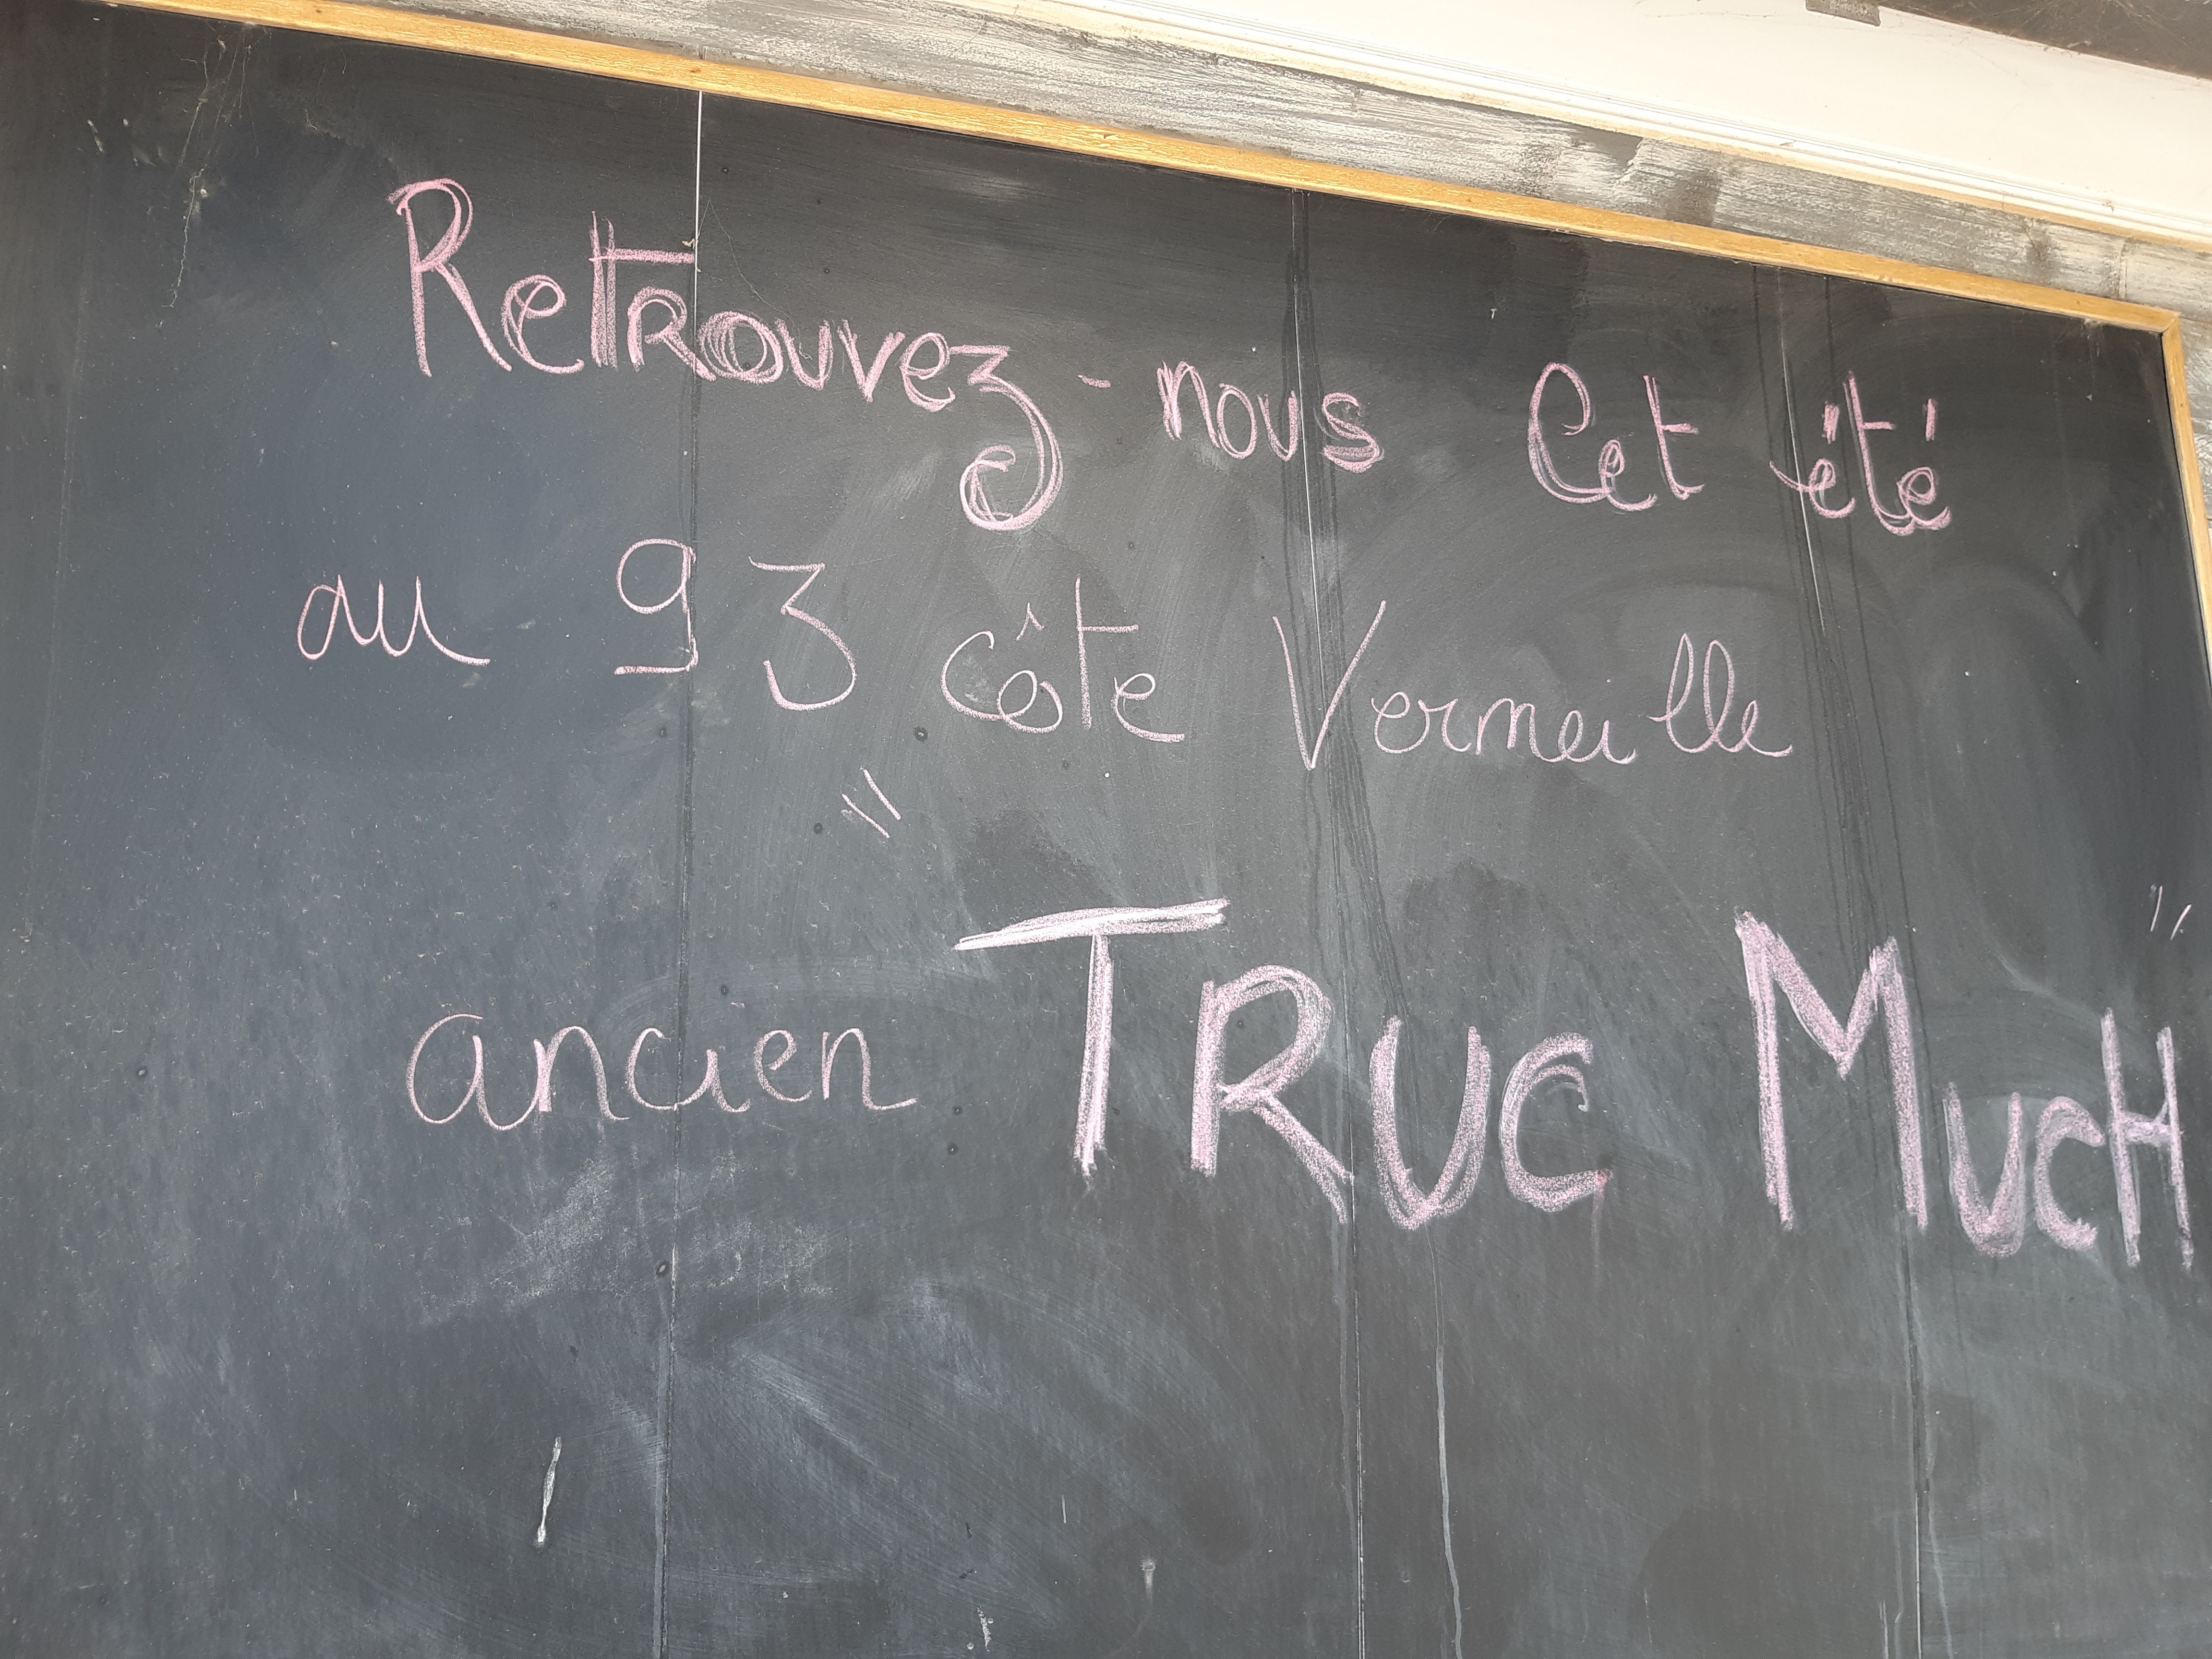 Retrouvez-nous Cet été
au 93 côte Vermeille
"ancien TRUC MucH"